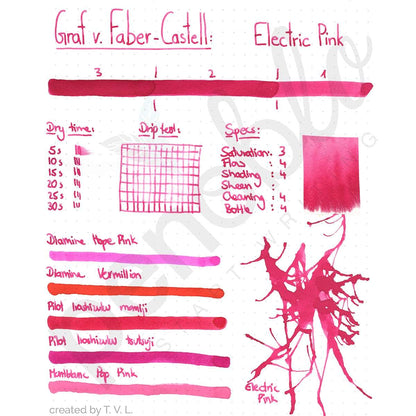 Graf v. Faber-Castell: Electric Pink
3 2 1
Dry time: Driptest: Specs:
5s
10s
15s
20s
25s
30s
Saturation: 3
Flow : 4
Shading : 4
Sheen :
Cleaning : 4
Bottle : 4
Diamine Hope Pink
Diamine Vermillion
Pilot Iroshizuku momiji
Pilot Iroshizuku tsutsuji
Montblanc Pop Pink
Electric
Pink
created by T. V. L.